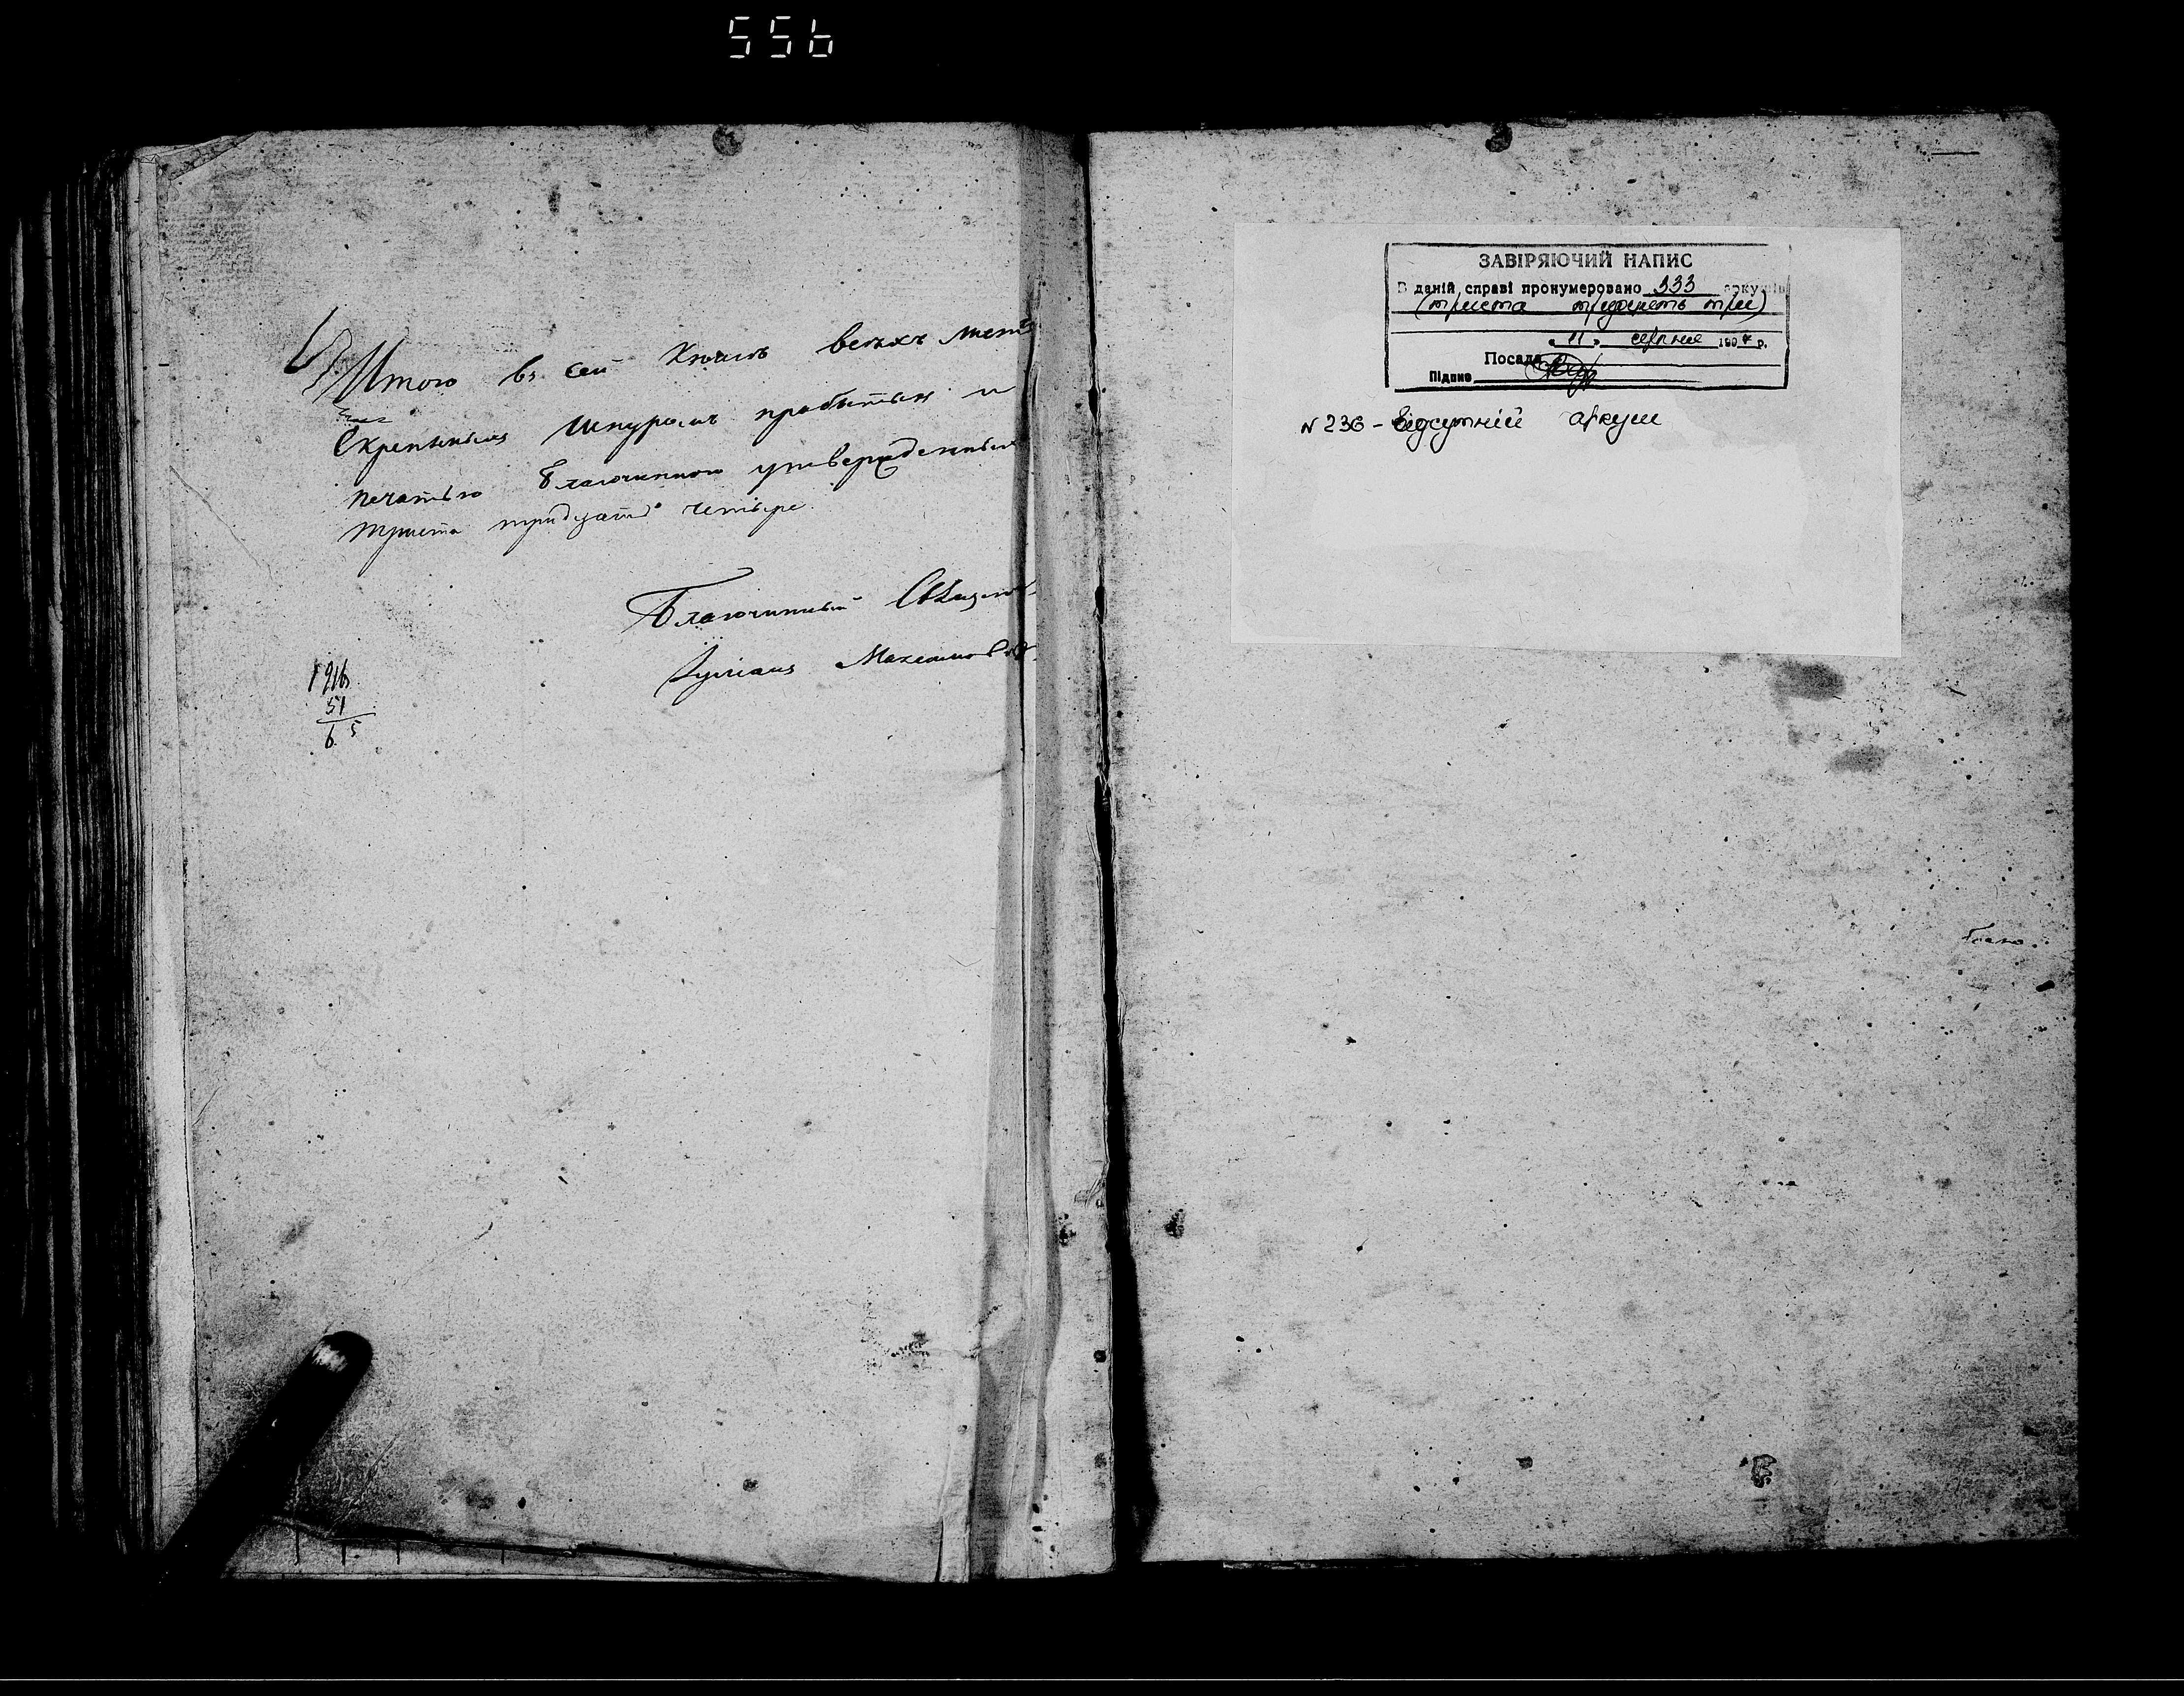 556
Итого въ сей Книгѣ всѣхъ листо
Скрепленныхъ Шнуромъ пробитых и
печатью Благочинного утвержденных
триста тридцать четыре.
Благочинный Свѣщен
Максимов
1916
51
6 5
ЗАВІРЯЮЧИЙ НАПИС
В даній справі пронумеровано 333 аркушів
(триста тридцять три)
„ 11 „ серпня 1994 р.
Посада
Підпис
N 236 - відсутній аркуш